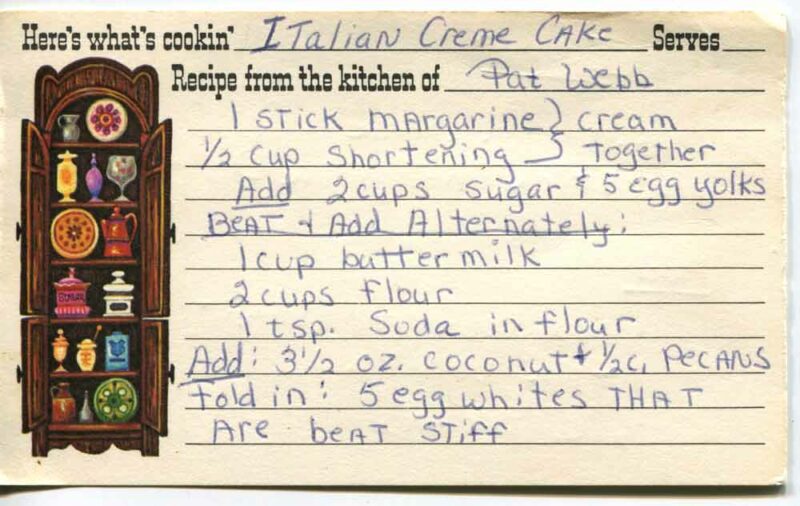 Here's what's cookin' Italian Creme Cake Serves
Recipe from the kitchen of Pat Webb
1 stick margarine } cream
1/2 cup shortening } together
Add 2 cups sugar & 5 egg yolks
Beat & Add Alternately:
1 cup buttermilk
2 cups flour
1 tsp. Soda in flour
Add: 3 1/2 oz. coconut & 1/2 c. pecans
Fold in: 5 egg whites THAT
Are beat stiff
SUGAR